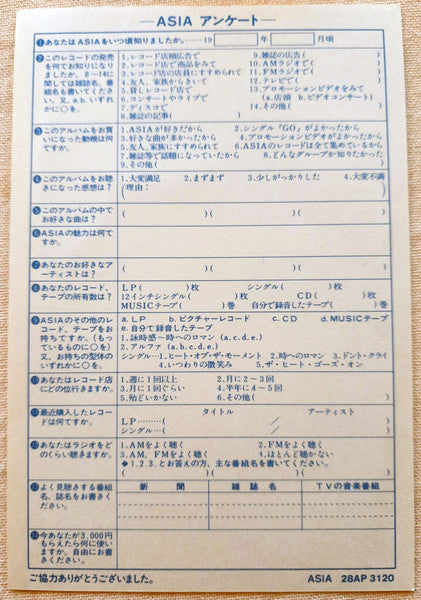 ASIA アンケート
❶あなたはASIAをいつ頃知りましたか……19 年 月頃
❷このレコードの発売を何でお知りになりましたか。8~14に関しては雑誌名、番組名も書いてください。又、a.b.いずれかに○を。
1.レコード店頭広告で 9.雑誌の広告( )
2.レコード店で商品をみて 10.AMラジオで( )
3.レコード店の店員にすすめられて 11.FMラジオで( )
4.友人、家族からきいて 12.テレビで( )
5.貸しレコード店で 13.プロモーションビデオをみて
6.コンサートやライブで (a.店頭 b.ビデオコンサート)
7.ディスコで 14.その他( )
8.雑誌の記事( )
❸このアルバムをお買いになった動機は何ですか。
1.ASIAが好きだから 2.シングル「GO」がよかったから
3.好きな曲が多かったから 4.プロモーションビデオがよかったから
5.友人、家族にすすめられて 6.ASIAのレコードは全て集めているから
7.雑誌等で話題になっていたから 8.どんなグループか知りたかった
9.その他( )
❹このアルバムをお聴きになった感想は?
1.大変満足 2.まずまず 3.少しがっかりした 4.大変不満
(理由: )
❺このアルバムの中でお好きな曲は?
( )( )( )
❻ASIAの魅力は何ですか。
❼あなたのお好きなアーティストは?
( )( )( )
❽あなたのレコード、テープの所有数は?
LP( )枚 シングル( )枚
12インチシングル( )枚 CD( )枚
MUSICテープ( )巻 自分で録音したテープ( )巻
❾ASIAのその他のレコード、テープをお持ちですか。(もっているものに○を)又、お持ちの型体のいずれかに○を。
a.LP b.ピクチャーレコード c.CD d.MUSICテープ
e.自分で録音したテープ
1.詠時感~時へのロマン (a.c.d.e.)
2.アルファ (a.b.c.d.e.)
シングル…1.ヒート・オブ・ザ・モーメント 2.時へのロマン 3.ドント・クライ
4.いつわりの微笑み 5.ザ・ヒート・ゴーズ・オン
❿あなたはレコード店にどの位行きますか。
1.週に1回以上 2.月に2~3回
3.月に1回ぐらい 4.半年に4~5回
5.殆どいかない 6.その他( )
⓫最近購入したレコードは何ですか。
タイトル アーティスト
LP………( / )
シングル…( / )
⓬あなたはラジオをどのくらい聴きますか。
1.AMをよく聴く 2.FMをよく聴く
3.AM、FMをよく聴く 4.ほとんど聴かない
◆1.2.3.とお答えの方、主な番組名を書いてください。
( )( )( )
⓭よく見聴きする番組名、誌名をお書きください。
新聞 雑誌名 TVの音楽番組
⓮今あなたが3,000円もらえたら何に使いますか。自由にお書きください。
ご協力ありがとうございました。 ASIA 28AP 3120